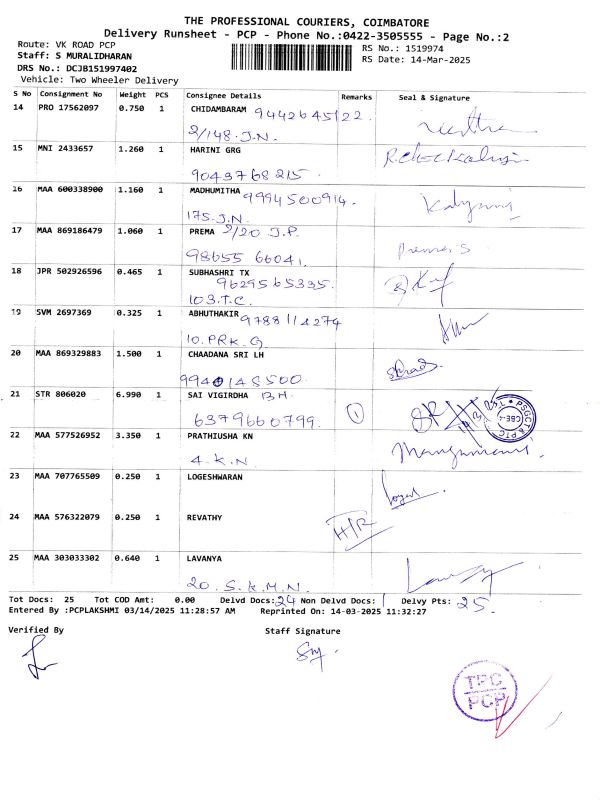 THE PROFESSIONAL COURIERS, COIMBATORE
Delivery Runsheet - PCP - Phone No.:0422-3505555 - Page No.:2
Route: VK ROAD PCP RS No.: 1519974
Staff: S MURALIDHARAN RS Date: 14-Mar-2025
DRS No.: DCJB151997402
Vehicle: Two Wheeler Delivery
S No Consignment No Weight PCS Consignee Details Remarks Seal & Signature
14 PRO 17562097 0.750 1 CHIDAMBARAM 9442645122.
2/148.J.N.
15 MNI 2433657 1.260 1 HARINI GRG
9043768215.
16 MAA 600338900 1.160 1 MADHUMITHA 9994500914.
175.J.N.
17 MAA 869186479 1.060 1 PREMA 2/20 J.P.
98655 66041. Prema.S
18 JPR 502926596 0.465 1 SUBHASHRI TX
9629565335.
103.T.C.
19 SVM 2697369 0.325 1 ABHUTHAKIR 9788114274
10.PRK.G.
20 MAA 869329883 1.500 1 CHAADANA SRI LH
9940148500.
21 STR 806020 6.990 1 SAI VIGIRDHA BH.
6379660799. 1
PSGCT & PTC CBE-4
22 MAA 577526952 3.350 1 PRATHIUSHA KN
4.K.N.
23 MAA 707765509 0.250 1 LOGESHWARAN
24 MAA 576322079 0.250 1 REVATHY H/R
25 MAA 303033302 0.640 1 LAVANYA
20. S.K.M.N.
Tot Docs: 25 Tot COD Amt: 0.00 Delvd Docs: 24 Non Delvd Docs: 1 Delvy Pts: 25.
Entered By :PCPLAKSHMI 03/14/2025 11:28:57 AM Reprinted On: 14-03-2025 11:32:27
Verified By Staff Signature
TPC
PCP